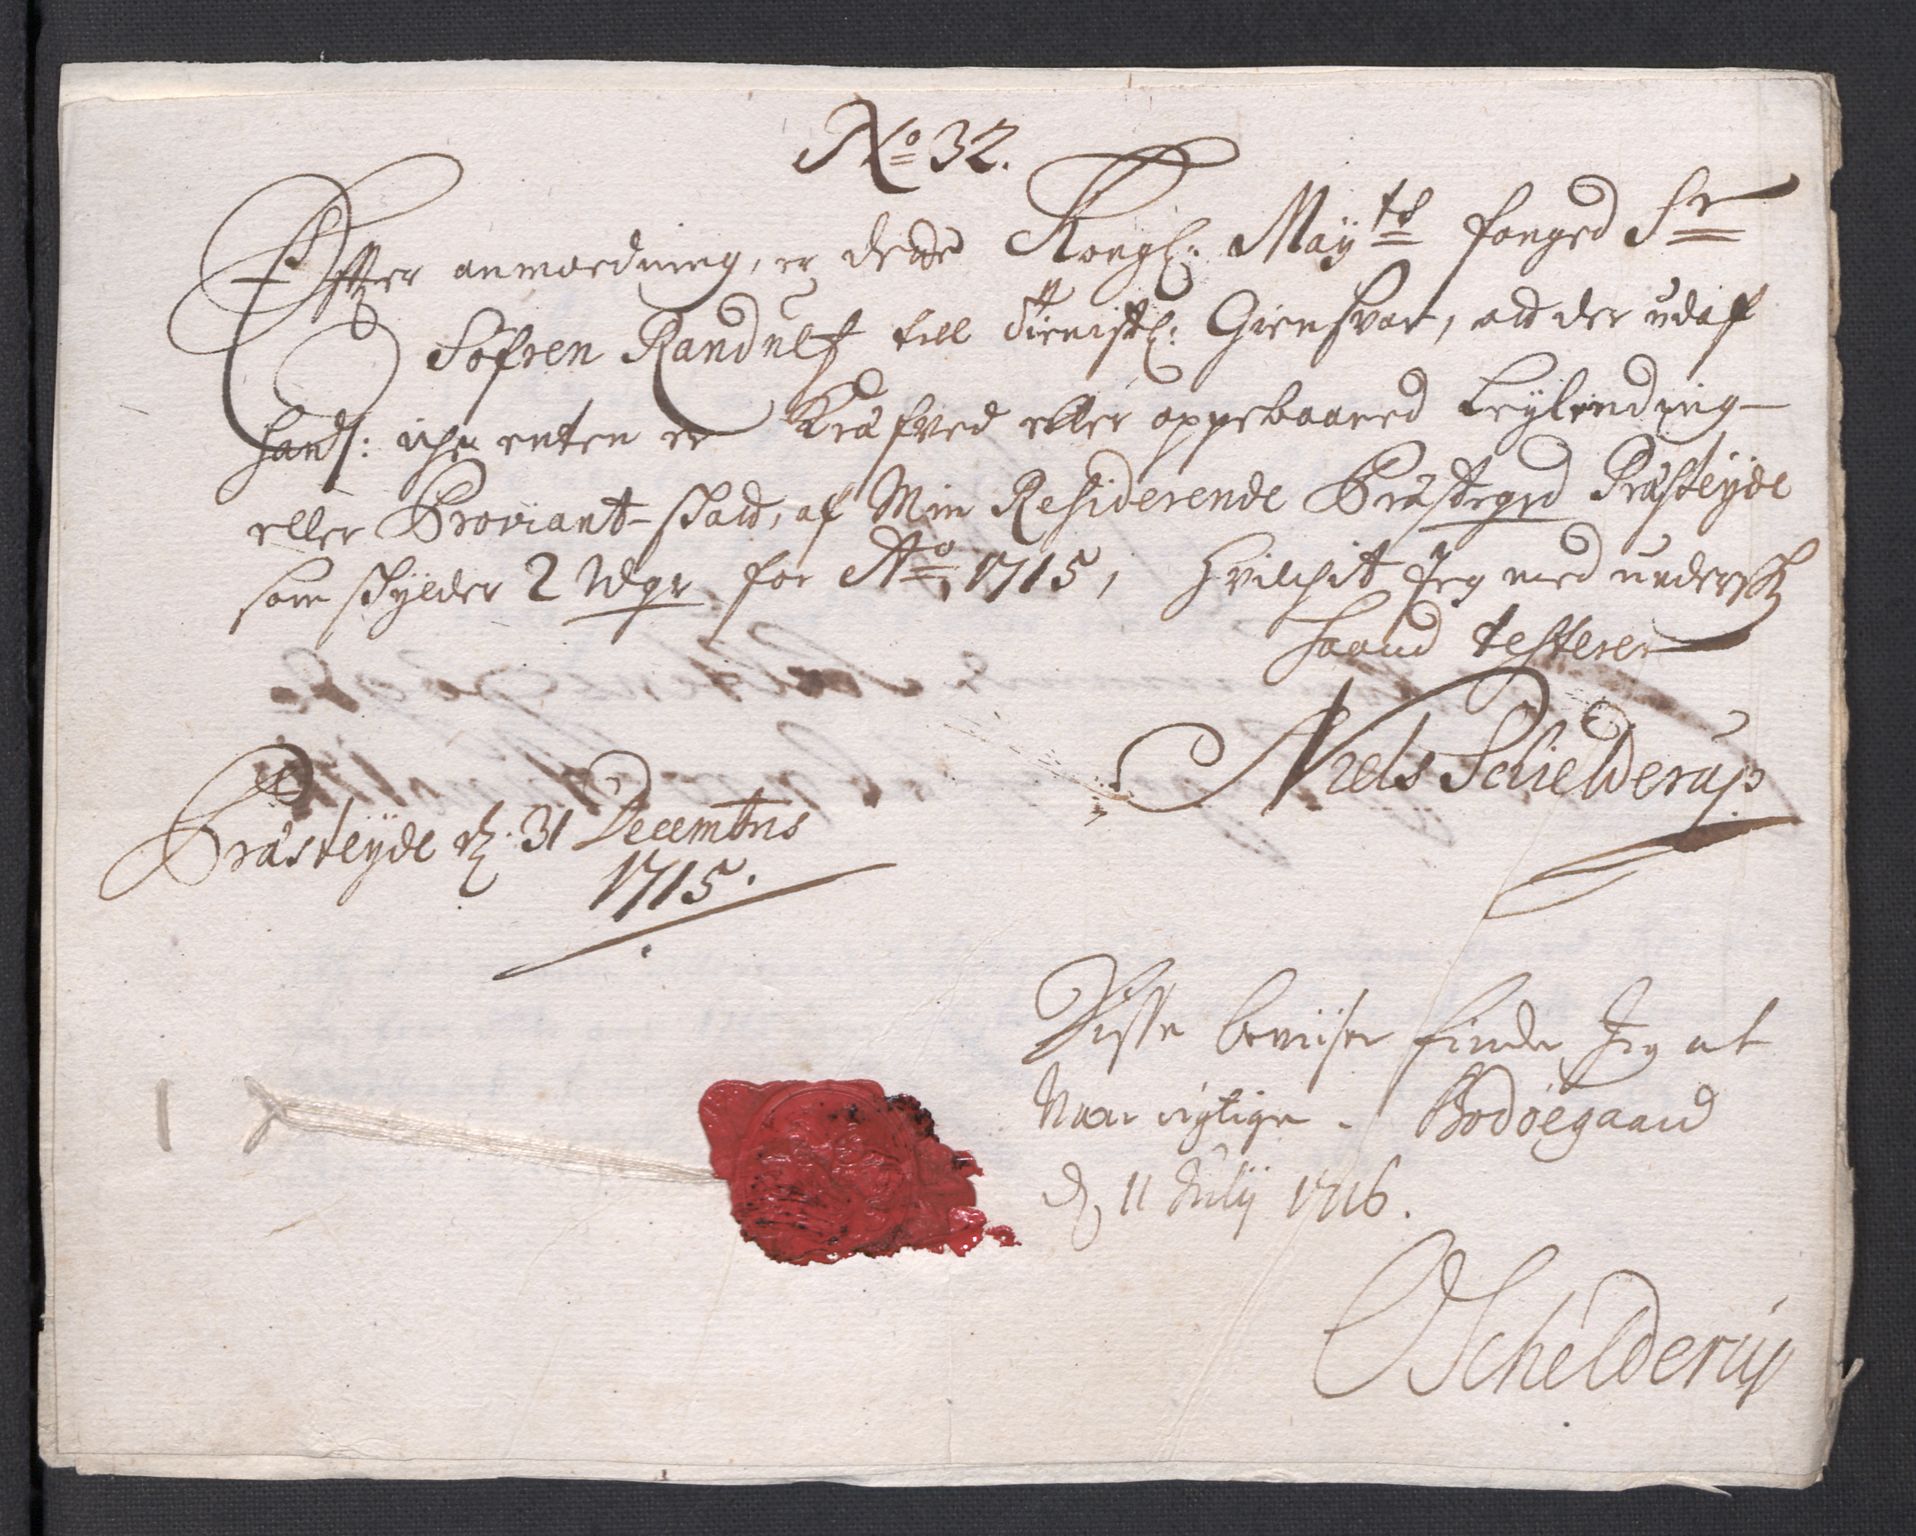 No 32.
Effter anmodning, er dette Kongl: Mayts fouged Sr
Søfren Randulf till tienistl: Giensvar, att der udaf
hans: iche enten er Kræfved eller oppebaared Leylending-
eller Proviant-skatt, af Min Residerende Præstegrd Præstøyde
som skylder 2 Wgr for Ao 1715, hvilchit Jeg med undersch
haand testerer
Niels Schielderup
Præstøyde d. 31 Decembris
1715.
Disse beviiser finder Jeg at
være rigtige. Bodøegaard
d. 11 Julij 1716.
OSchelderup